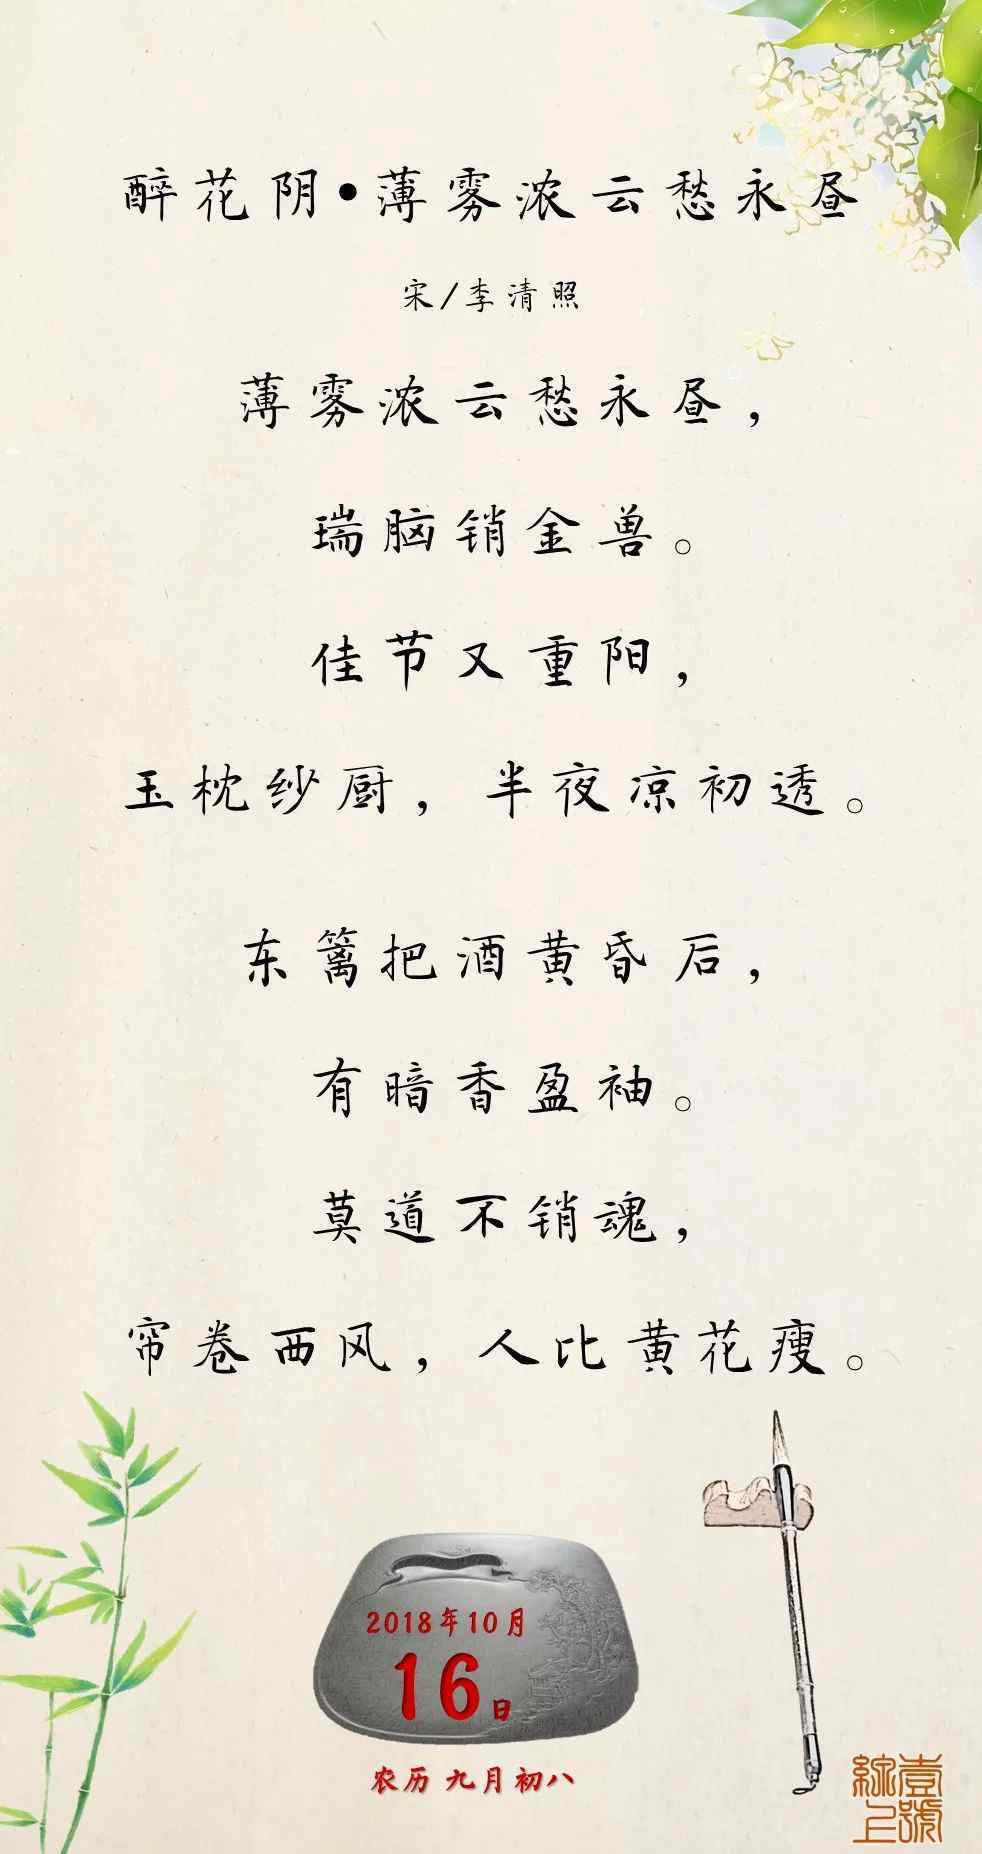 醉花阴•薄雾浓云愁永昼
宋/李清照
薄雾浓云愁永昼，
瑞脑销金兽。
佳节又重阳，
玉枕纱厨，半夜凉初透。
东篱把酒黄昏后，
有暗香盈袖。
莫道不销魂，
帘卷西风，人比黄花瘦。
2018年10月
16日
农历 九月初八